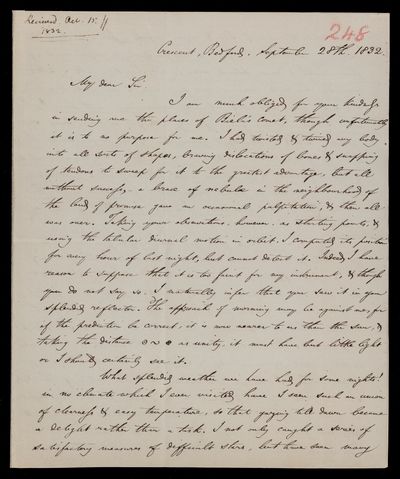 Received Oct. 15. //
1832.
248
Crescent, Bedford, September 28th 1832
My dear Sir,
I am much obliged for your kindness
in sending me the places of Biela's comet, though unfortunately
it is to no purpose for me. I had twisted & turned my body
into all sorts of shapes, braving dislocations of bones & snapping
of tendons to sweep for it to the greatest advantage, but all
without success, – a brace of nebulae in the neighbourhood of
the land of promise gave an occasional palpitation, & then all
was over. Taking your observations, however, as starting points, &
using the tabular diurnal motion in orbit, I computed its position
for every hour of last night, but cannot detect it. Indeed I have
reason to suppose that it is too faint for my instrument, & though
you do not say so, I naturally infer that you saw it in your
splendid reflector. The approach of morning may be against me, for
if the prediction be correct, it is now nearer to us than the sun, &
taking the distance as unity, it must have but little light
or I should certainly see it.
What splendid weather we have had for some nights!
in no climate which I ever visited have I seen such an union
of clearness & easy temperature, so that gazing till dawn became
a delight rather than a task. I not only caught a series of
satisfactory measures of difficult stars, but have seen many